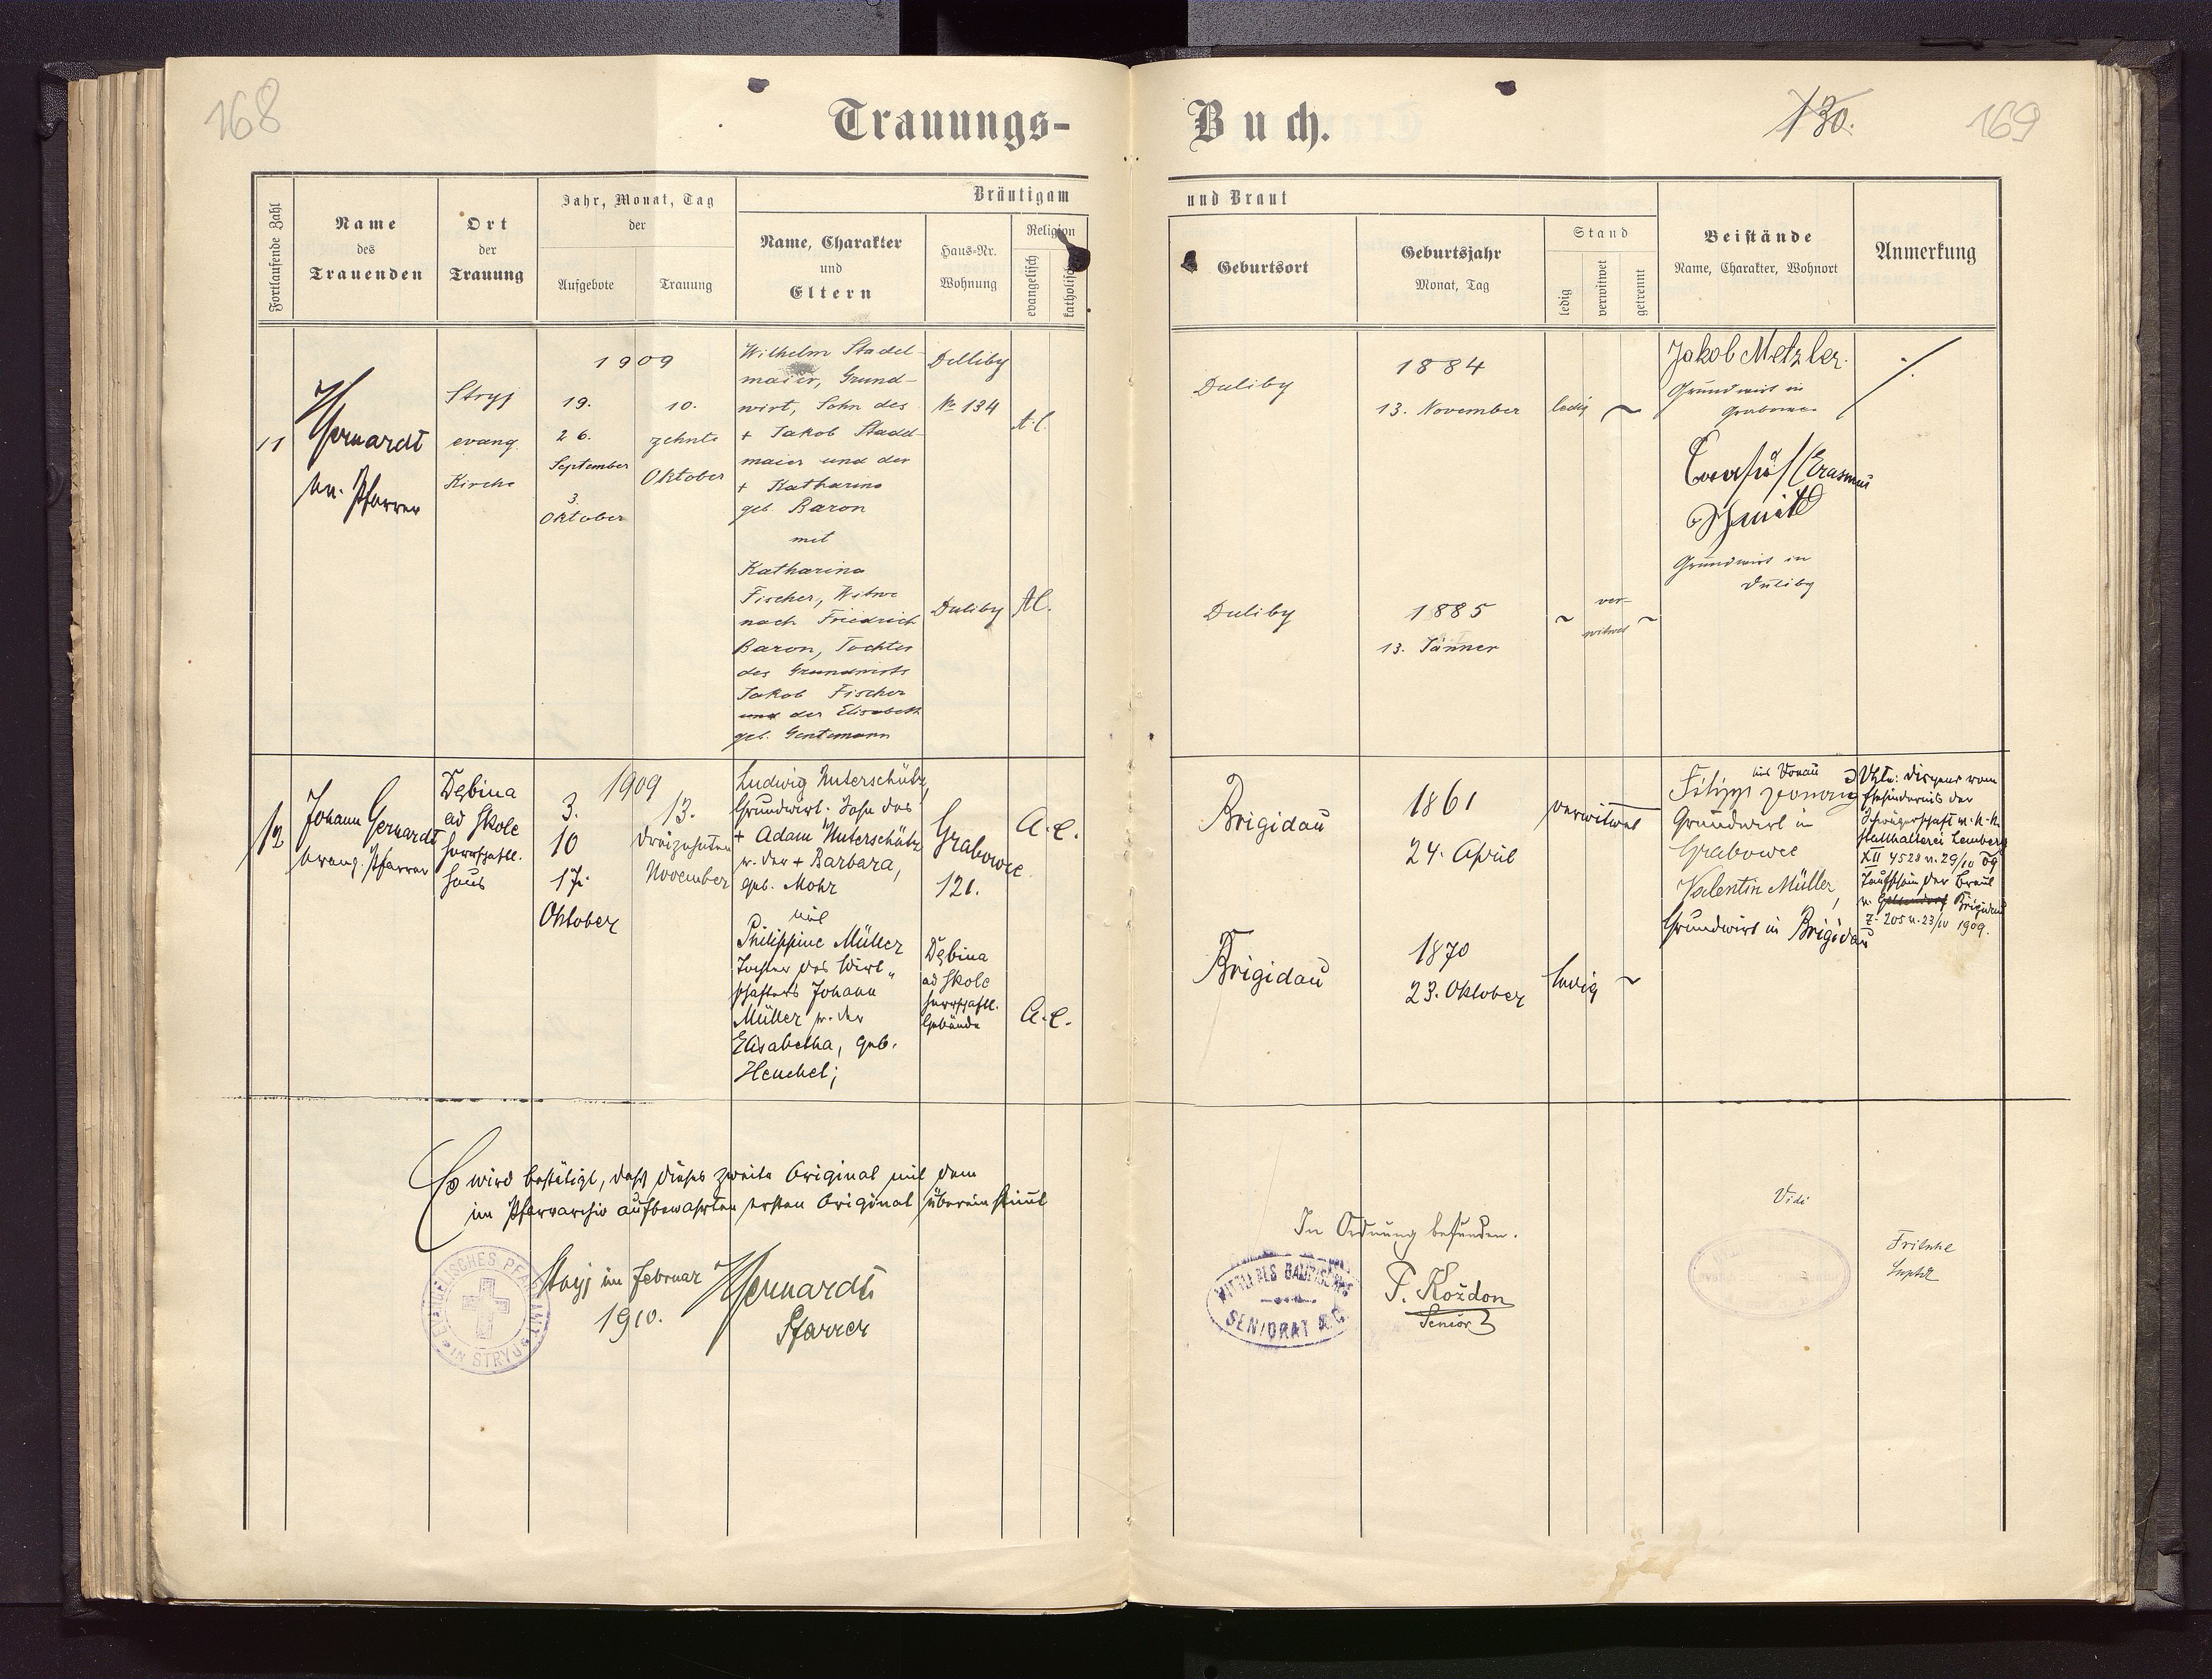 168
Trauungs-
Buch.
130.
169
Fortlaufende Zahl
Name
des
Trauenden
Ort
der
Trauung
Jahr, Monat, Tag
der
Aufgebote
Trauung
Bräutigam
Name, Charakter
und
Eltern
Haus-Nr.
Wohnung
Religion
evangelisch
katholisch
und Braut
Geburtsort
Geburtsjahr
Monat, Tag
Stand
ledig
verwitwet
getrennt
Beistände
Name, Charakter, Wohnort
Anmerkung
11
Gernardt
ev. Pfarrer
Stryj
evang
Kirche
1909
19.
26.
September
3.
Oktober
10.
zehnte
Oktober
Wilhelm Stadel-
maier, Grund-
wirt, Sohn des
+ Jakob Stadel-
maier und der
+ Katharina
geb. Baron
mit
Katharina
Fischer, Witwe
nach Friedrich
Baron, Tochter
des Grundwirts
Jakob Fischer
und der Elisabeth
geb. Gentemann
Duliby
No 134
A.C.
Duliby
A.C.
Duliby
1884
13. November
ledig
Duliby
1885
13. Jänner
ver-
witwet
Jakob Metzler
Grundwirt in
Grabowce
(Erasmus
Schmidt
Grundwirt in
Duliby
12
Johann Gernardt
evang. Pfarrer
Dębina
ad Skole
herrschaftl.
Haus
1909
3.
10
17.
Oktober
13.
dreizehnten
November
Ludwig Unterschütz,
Grundwirt. Sohn des
+ Adam Unterschütz
u. der + Barbara,
geb. Mohr
mit
Philippine Müller
Tochter des Wirt-
schafters Johann
Müller u. der
Elisabetha, geb.
Henchel;
Grabowce
121.
A.C.
Dębina
ad Skole
herrschaftl.
Gebäude
A.C.
Brigidau
1861
24. April
verwitwet
Brigidau
1870
23. Oktober
ledig
Filipp
Grundwirt in
Grabowce
Valentin Müller,
Grundwirt in Brigidau
Dispens vom
Ehehindernis der
Schwägerschaft v. k. k.
Statthalterei Lemberg
XII 4528 v. 29/10 09
Taufschein der Braut
v. Gelsendorf Brigidau
Z. 205 v. 23/10 1909.
Es wird bestätigt, daß dieses zweite Original mit dem
im Pfarrarchiv aufbewahrten ersten Original übereinstimmt
Stryj im Februar
1910.
Gernardt
Pfarrer
EVANGELISCHES PFARRAMT
IN STRYJ
In Ordnung befunden.
SENIORAT A.C.
P. Koždon
Senior
Vidi
Fritsche
Suptdt